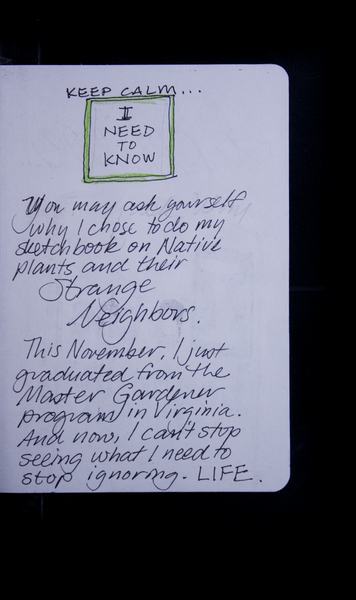 KEEP CALM...
I
NEED
TO
KNOW
You may ask yourself
why I chose to do my
sketchbook on Native
plants and their
Strange
Neighbors.
This November, I just
graduated from the
Master Gardener
program in Virginia.
And now, I can't stop
seeing what I need to
stop ignoring. LIFE.